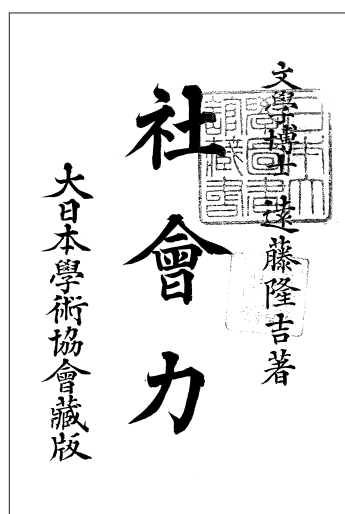 文學博士遠藤隆吉著
社會力
大日本學術協會藏版